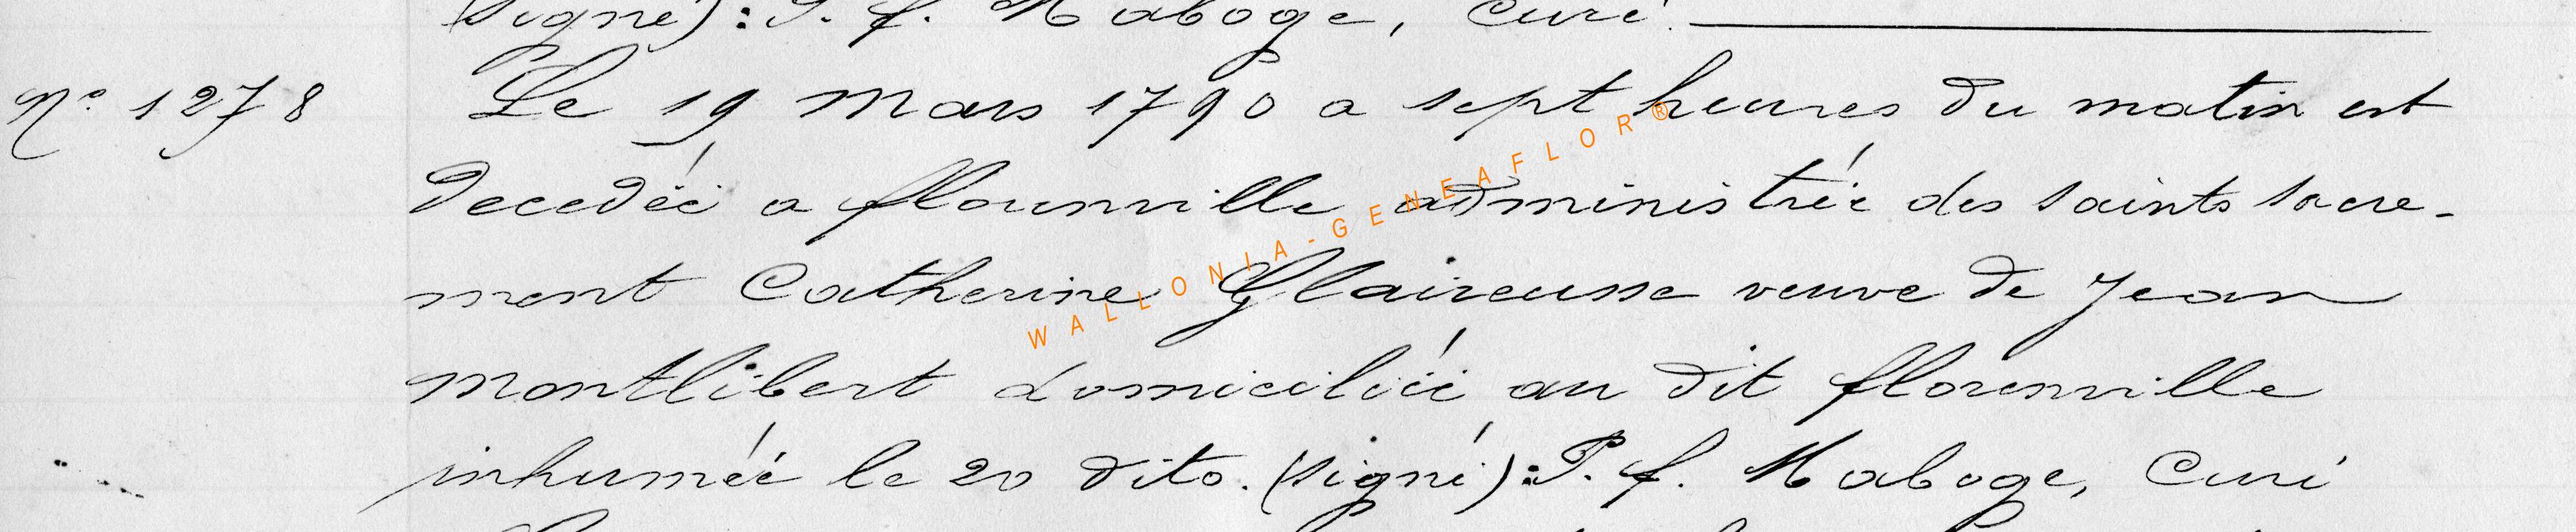 (signé): P. f. Maboge, Curé.
N.° 1278 Le 19 mars 1790 a sept heures du matin est
decedéé a florenville administréé des saints sacre-
ment Catherine Glaireusse veuve de Jean
montlibert domiciliéé au dit florenville
inhuméé le 20 dito. (signé): P. f. Maboge, Curé
WALLONIA-GENEAFLOR®